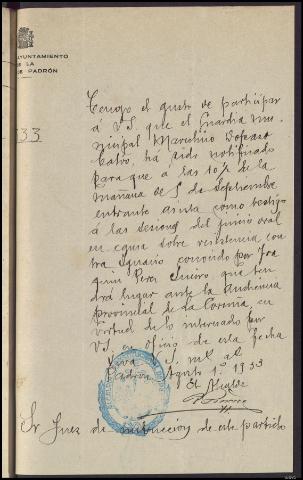 AYUNTAMIENTO
DE LA
DE PADRÓN
33
Tengo el gusto de participar
á V.S. que el Guardia mu-
nicipal Marcelino
Castro, há sido notificado
para que á las 10 de la
mañana de 5 de Septiembre
entrante asista como testigo
á las sesiones del juicio oral
en causa sobre resistencia con-
tra Ignacio conocido por Joa-
quin Perez Sueiro, que ten-
drá lugar ante la Audiencia
provincial de La Coruña, en
virtud de lo interesado por
V.S. en oficio de esta fecha
Viva V.S. ms. as.
Padrón Agosto 1º 1933
El Alcalde
Sr Juez de instrucción de este partido